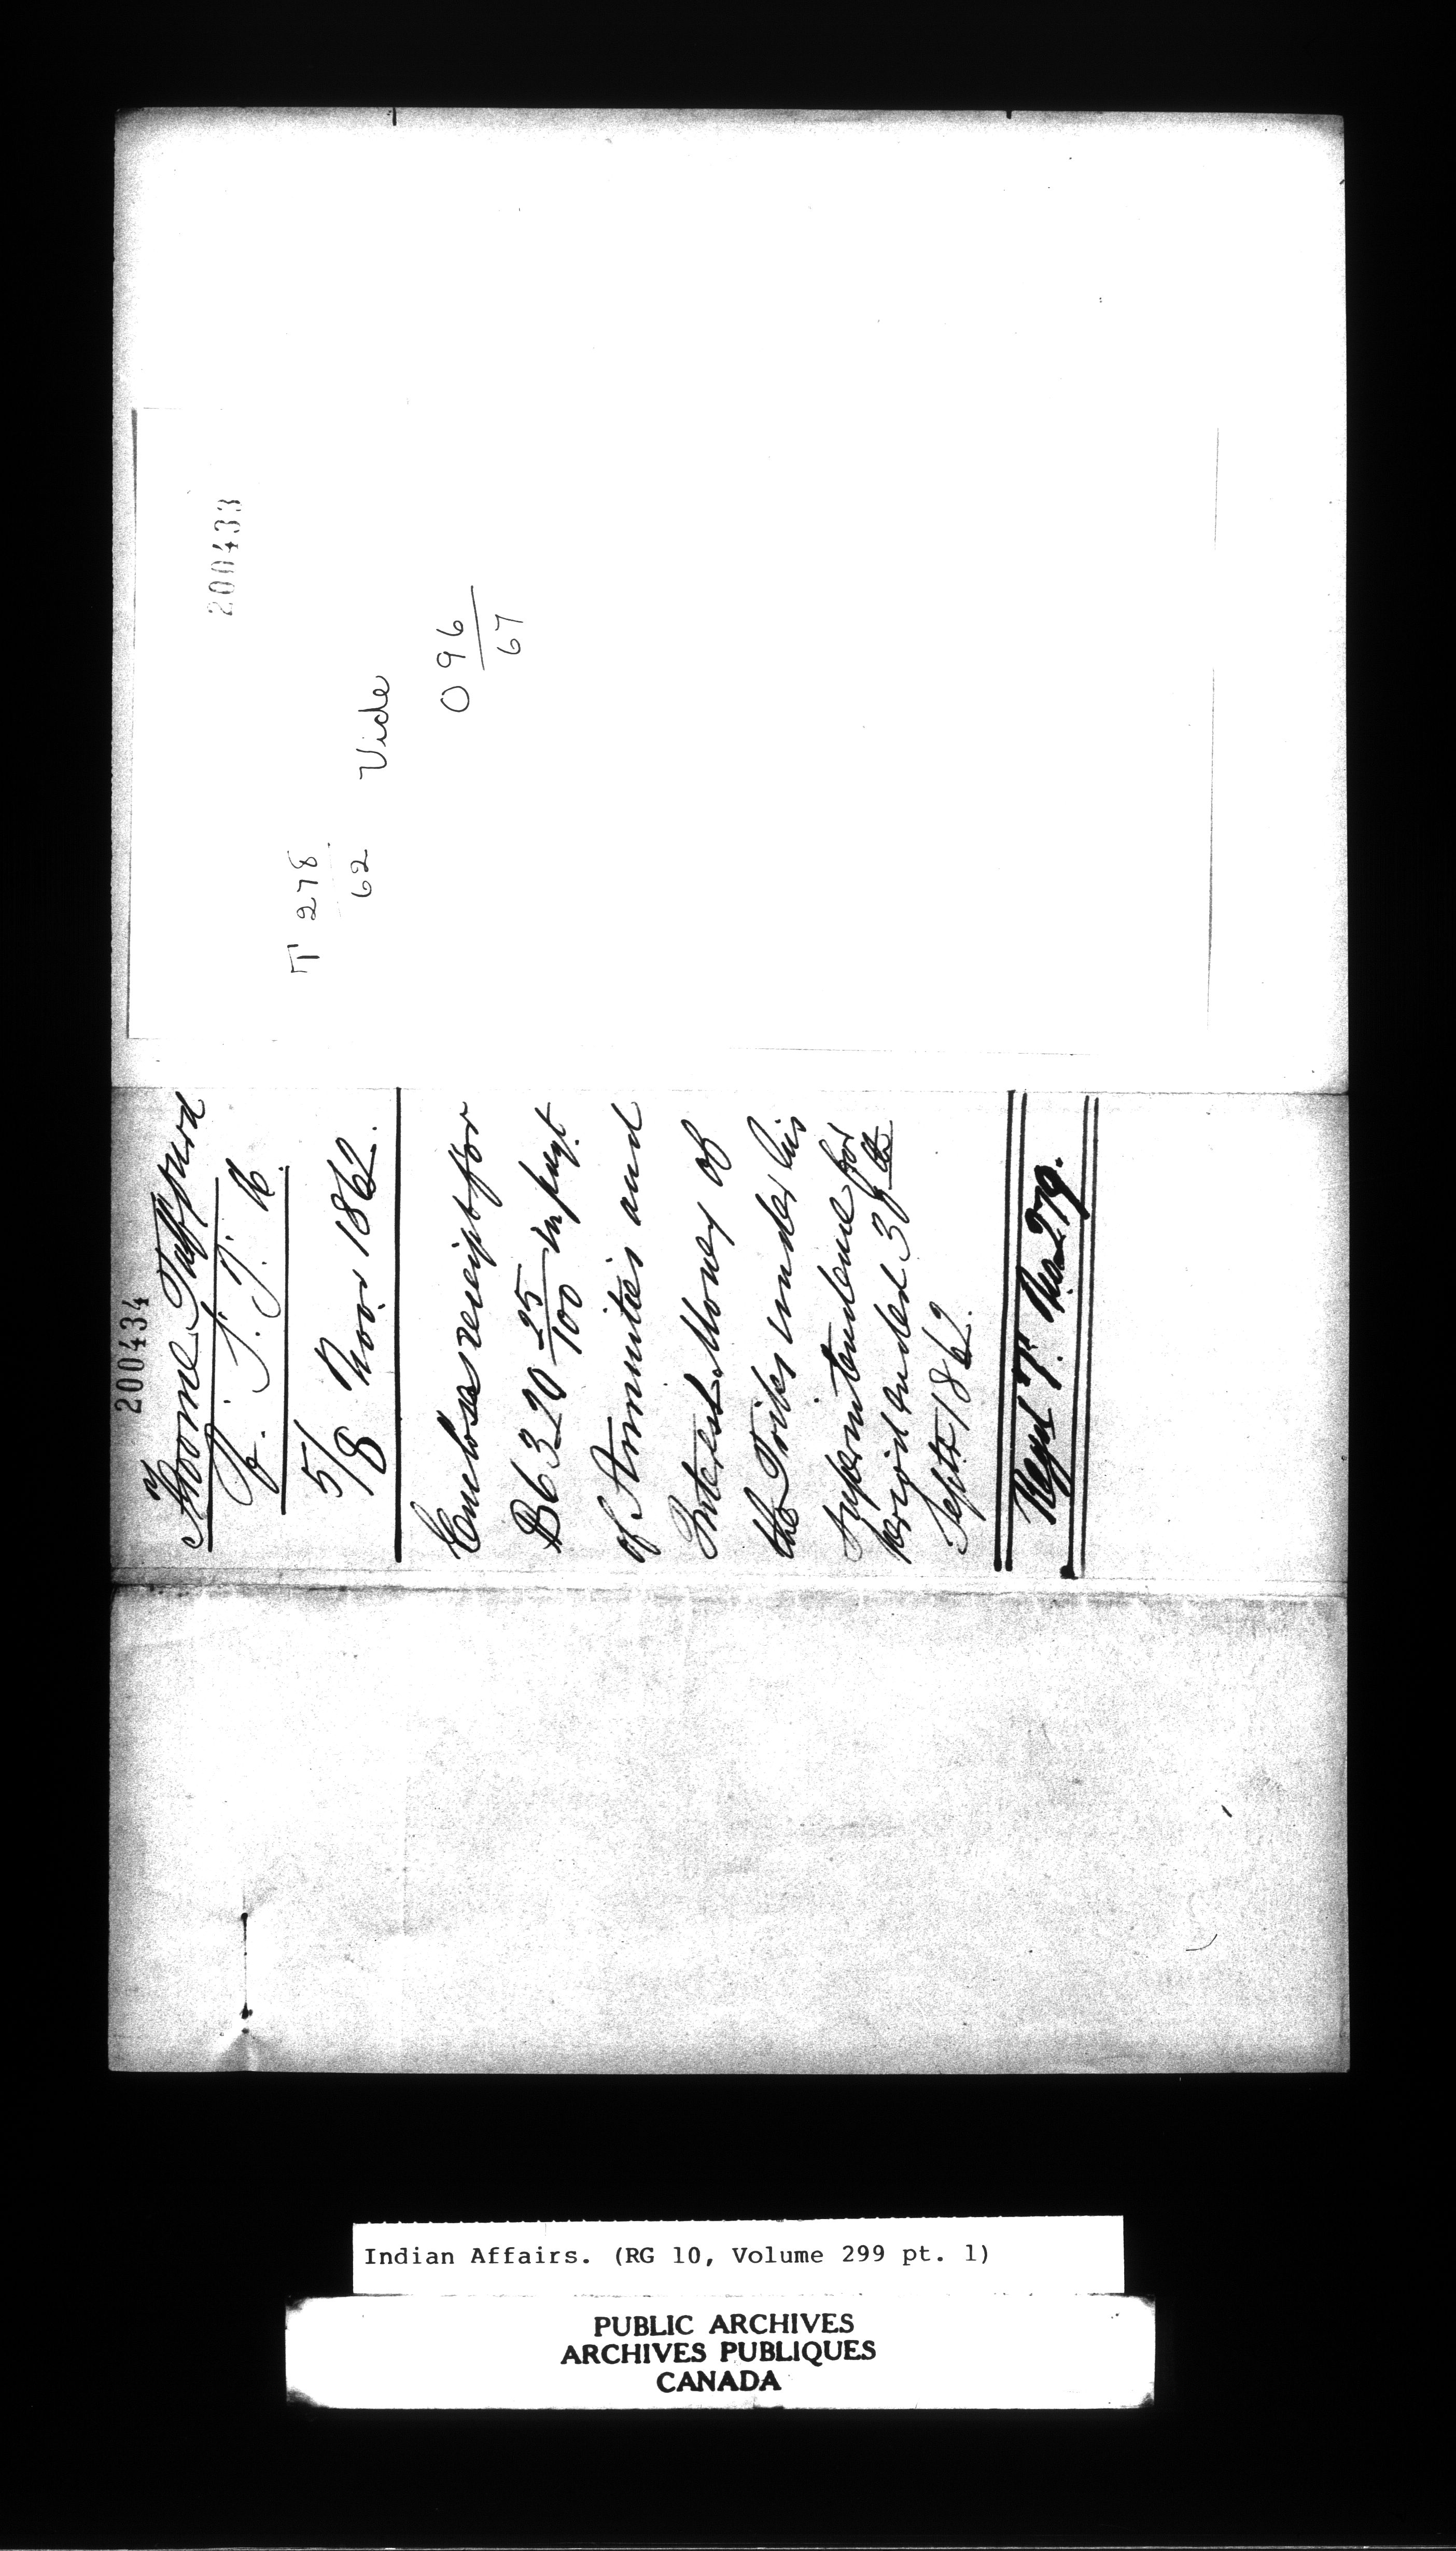 200433
T 278
62 Vide
O 96
67
200434
Froome Talfourd
5/8 Novr 1862.
Encloses receipt for
$6320 25/100 in payt
of Annuities and
Interest Money of
the Tribes under his
Superintendence for
period ended 30th
Septr 1862.
Regd T. No. 279.
Indian Affairs. (RG 10, Volume 299 pt. 1)
PUBLIC ARCHIVES
ARCHIVES PUBLIQUES
CANADA